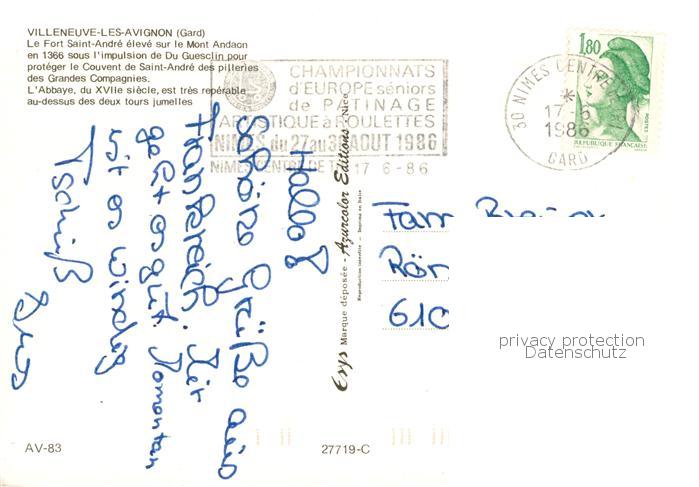 VILLENEUVE-LES-AVIGNON (Gard)
Le Fort Saint-André élevé sur le Mont Andaon
en 1366 sous l'impulsion de Du Guesclin pour
protéger le Couvent de Saint-André des pilleries
des Grandes Compagnies.
L'Abbaye, du XVIIe siècle, est très repérable
au-dessus des deux tours jumelles
CHAMPIONNATS
d'EUROPE séniors
de PATINAGE
ARTISTIQUE à ROULETTES
NIMES du 27 au 30 AOUT 1986
NIMES CENTRE DE TRI 17 6-86
30 NIMES CENTRE
17-6
1986
GARD
1,80
REPUBLIQUE FRANÇAISE
Hallo!
Schöne Grüße aus
Frankreich. Mir
geht es gut. Momentan
ist es windig
Tschüß
Esys Marque déposée - Azurcolor Editions - Nice
Reproduction interdite - Imprimé en Italie
Fam
Röm
610
privacy protection
Datenschutz
AV-83
27719-C